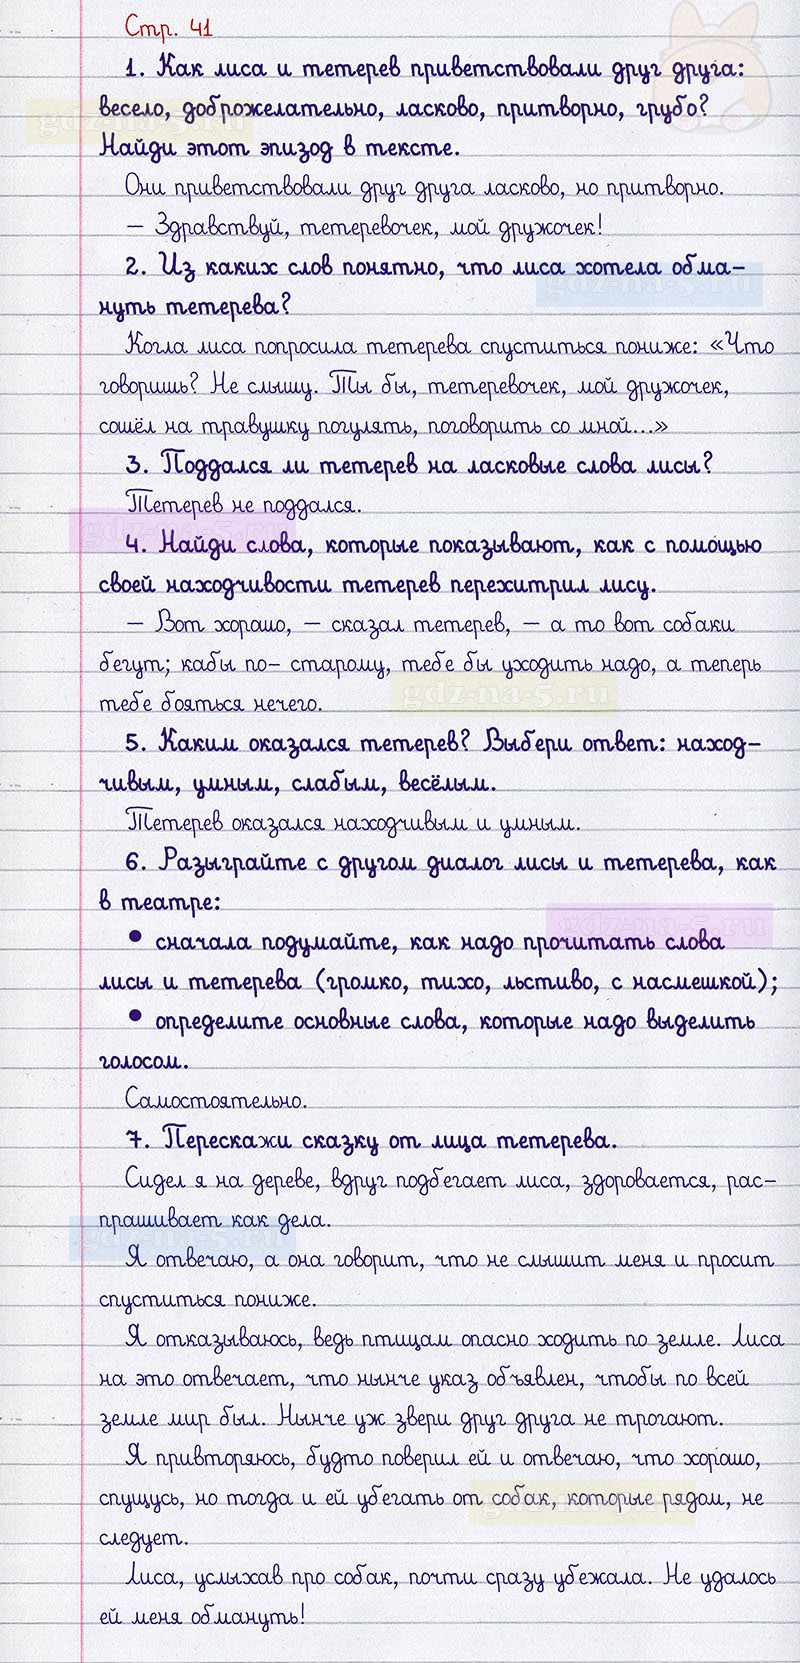 Стр. 41
1. Как лиса и тетерев приветствовали друг друга:
весело, доброжелательно, ласково, притворно, грубо?
gdz-na-5.ru
Найди этот эпизод в тексте.
Они приветствовали друг друга ласково, но притворно.
— Здравствуй, тетеревочек, мой дружочек!
2. Из каких слов понятно, что лиса хотела обма-
gdz-na-5.ru
нуть тетерева?
Когла лиса попросила тетерева спуститься пониже: «Что
говоришь? Не слышу. Ты бы, тетеревочек, мой дружочек,
сошёл на травушку погулять, поговорить со мной...»
3. Поддался ли тетерев на ласковые слова лисы?
Тетерев не поддался.
gdz-na-5.ru
4. Найди слова, которые показывают, как с помощью
своей находчивости тетерев перехитрил лису.
— Вот хорошо, — сказал тетерев, — а то вот собаки
бегут; кабы по- старому, тебе бы уходить надо, а теперь
тебе бояться нечего.
gdz-na-5.ru
5. Каким оказался тетерев? Выбери ответ: наход-
чивым, умным, слабым, весёлым.
Тетерев оказался находчивым и умным.
6. Разыграйте с другом диалог лисы и тетерева, как
в театре:
gdz-na-5.ru
• сначала подумайте, как надо прочитать слова
лисы и тетерева (громко, тихо, льстиво, с насмешкой);
• определите основные слова, которые надо выделить
голосом.
Самостоятельно.
7. Перескажи сказку от лица тетерева.
Сидел я на дереве, вдруг подбегает лиса, здоровается, рас-
прашивает как дела.
gdz-na-5.ru
Я отвечаю, а она говорит, что не слышит меня и просит
спуститься пониже.
Я отказываюсь, ведь птицам опасно ходить по земле. Лиса
на это отвечает, что нынче указ объявлен, чтобы по всей
земле мир был. Нынче уж звери друг друга не трогают.
Я привторяюсь, будто поверил ей и отвечаю, что хорошо,
спущусь, но тогда и ей убегать от собак, которые рядом, не
gdz-na-5.ru
следует.
Лиса, услыхав про собак, почти сразу убежала. Не удалось
ей меня обмануть!